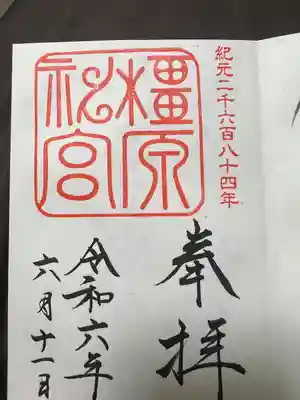 紀元二千六百八十四年
奉拝
橿原
神宮
令和六年
六月十一日